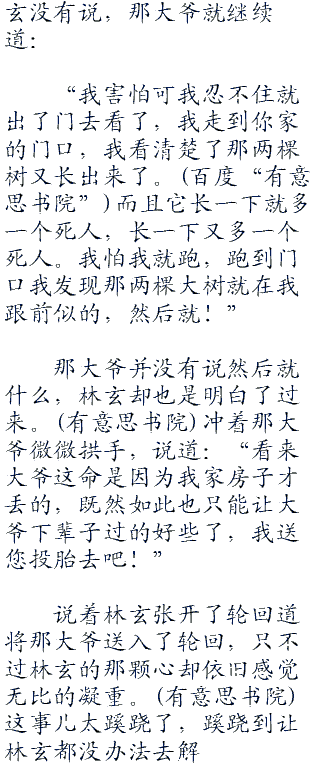 玄没有说，那大爷就继续
道：
“我害怕可我忍不住就
出了门去看了，我走到你家
的门口，我看清楚了那两棵
树又长出来了。(百度“有意
思书院”)而且它长一下就多
一个死人，长一下又多一个
死人。我怕我就跑，跑到门
口我发现那两棵大树就在我
跟前似的，然后就！”
那大爷并没有说然后就
什么，林玄却也是明白了过
来。(有意思书院)冲着那大
爷微微拱手，说道：“看来
大爷这命是因为我家房子才
丢的，既然如此也只能让大
爷下辈子过的好些了，我送
您投胎去吧！”
说着林玄张开了轮回道
将那大爷送入了轮回，只不
过林玄的那颗心却依旧感觉
无比的凝重。(有意思书院)
这事儿太蹊跷了，蹊跷到让
林玄都没办法去解